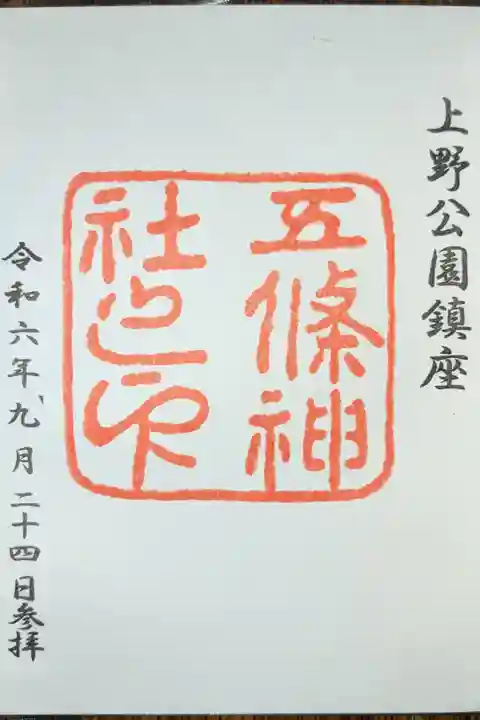 上野公園鎮座
五條神
社之印
令和六年九月二十四日参拝